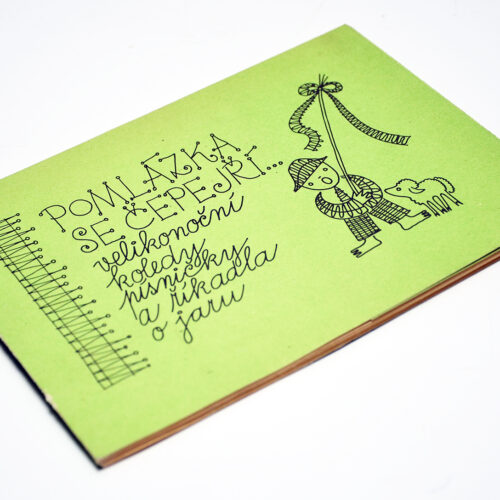 POMLÁZKA
SE ČEPEJŘÍ...
velikonoční
koledy
písničky
a říkadla
o jaru